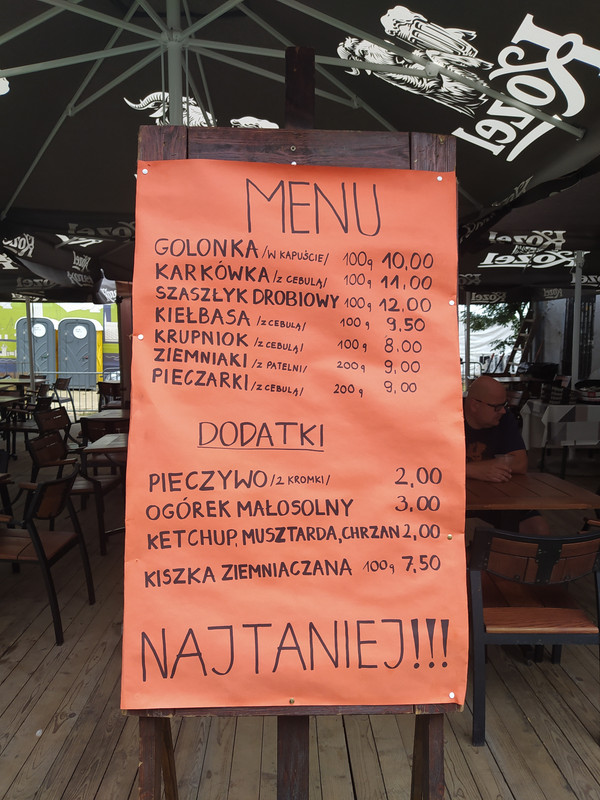 Kozel
Kozel
Kozel
MENU
GOLONKA /W KAPUŚCIE/ 100g 10,00
KARKÓWKA /Z CEBULĄ/ 100g 11,00
SZASZŁYK DROBIOWY 100g 12,00
KIEŁBASA /Z CEBULĄ/ 100g 9,50
KRUPNIOK /Z CEBULĄ/ 100g 8,00
ZIEMNIAKI /Z PATELNI/ 200g 9,00
PIECZARKI /Z CEBULĄ/ 200g 9,00
DODATKI
PIECZYWO /2 KROMKI/ 2,00
OGÓREK MAŁOSOLNY 3,00
KETCHUP, MUSZTARDA, CHRZAN 2,00
KISZKA ZIEMNIACZANA 100g 7,50
NAJTANIEJ!!!